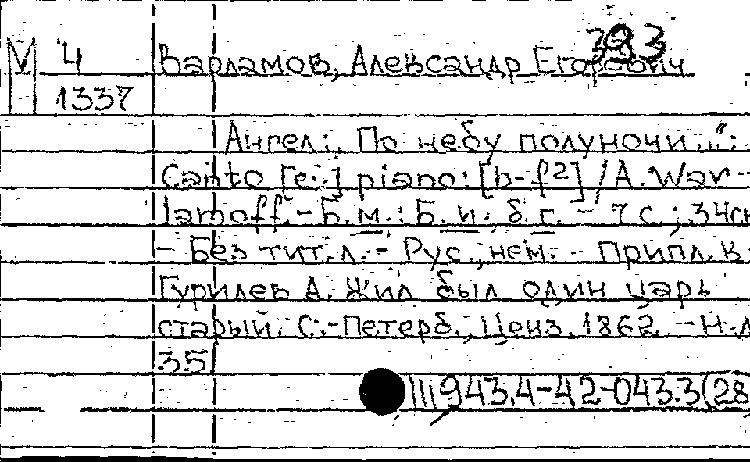 393
М 4 Варламов, Александр Егорович
1337
Ангел: „По небу полуночи...":
Canto [e.] piano: [h-f²] / A. War-
lamoff. - Б. м.: Б. и., б. г. - 7 с.; 34см
- Без тит. л. - Рус., нем. - Припл. к
Гурилев А. Жил был один царь
старый. С.-Петерб., Ценз. 1862. - Н.д.
35
III 943.4-42-043.3(28